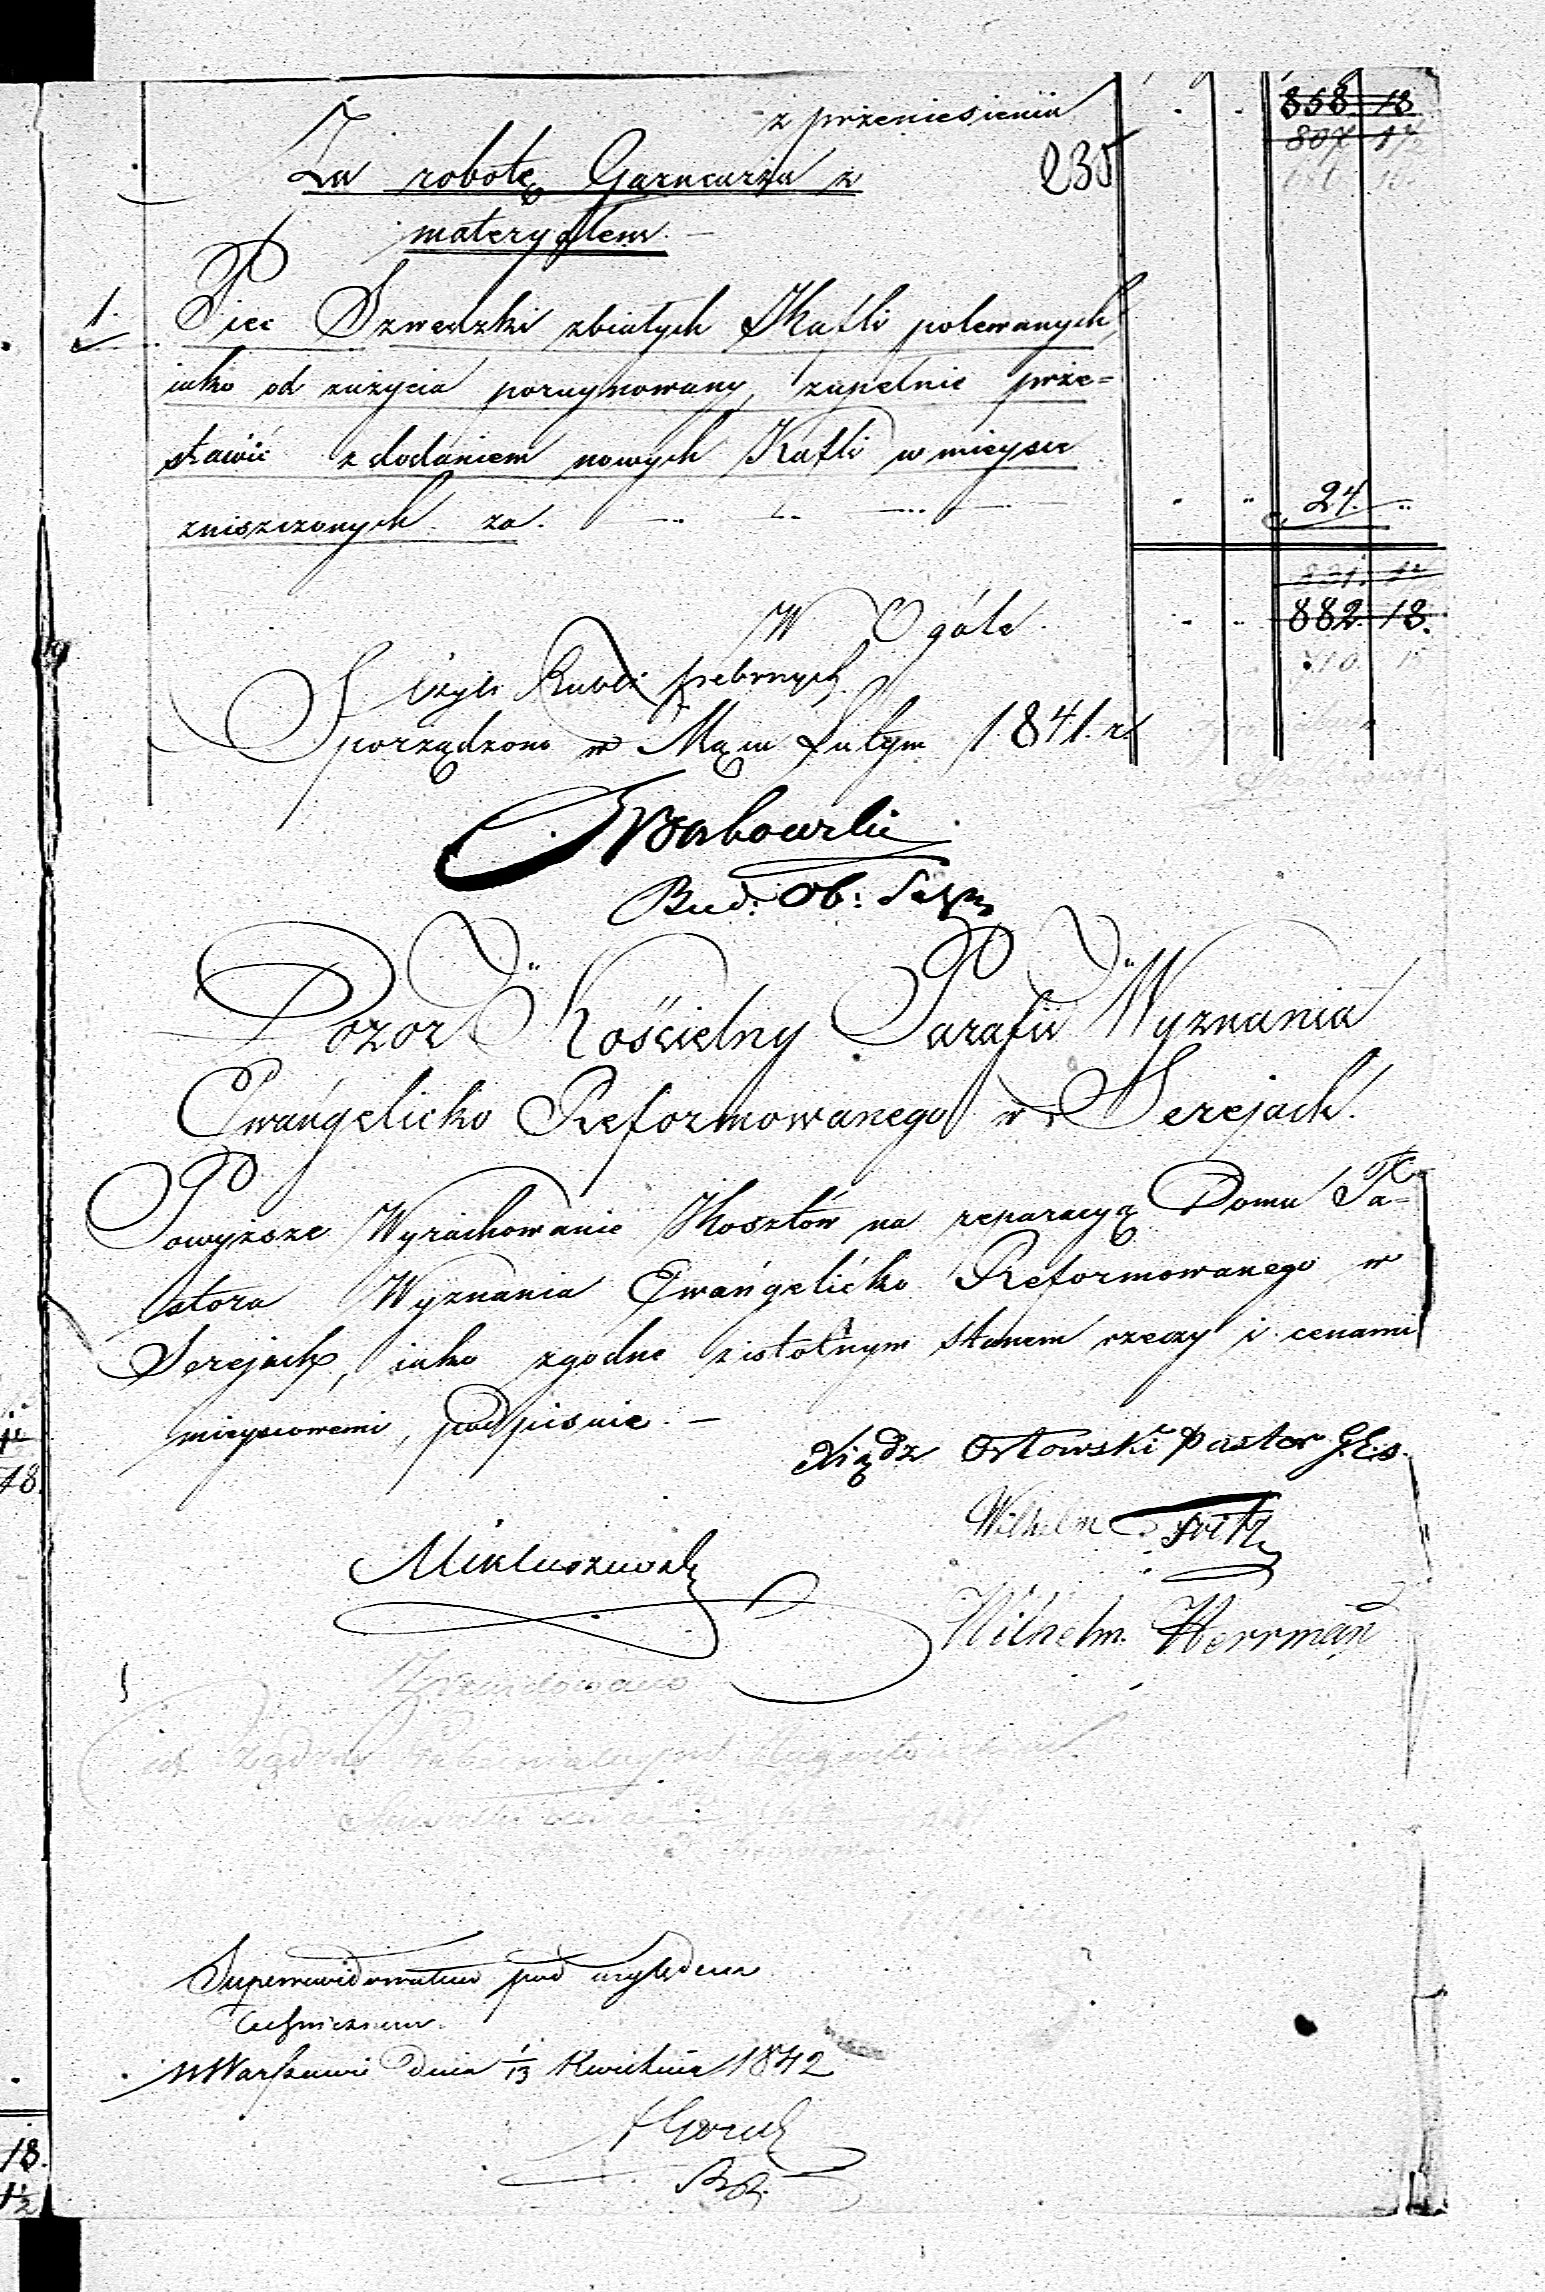 z przeniesienia 858 18
807 1½
Za robotę Garncarza z 235
materyałem. —
1. Piec Szwedzki z białych Kafli polewanych,
iako od zużycia porujnowany, zupełnie prze=
stawić z dodaniem nowych Kafli w mieysce
zniszczonych za. 24. "
831. 1½
W Ogóle 882. 18.
Czyli Rubli srebrnych 710. 15
Sporządzono w Mącu Lutym 1841. r.
Grabowski
Bud: Ob:
Dozór Kościelny Parafii Wyznania
Ewangelicko Reformowanego w Serejach.
Powyższe Wyrachowanie Kosztów na reparacyą Domu Pa=
stora Wyznania Ewangelicko Reformowanego w
Serejach, iako zgodne z istotnym stanem rzeczy i cenami
mieyscowemi, podpisuie. —
Xiądz Orłowski Pastor
Wilhelm Fritz
Wilhelm. Herrman
Zrewidowano
w Rządzie Gubernialnym Augustowskim
Superrewidowano pod względem
technicznym.
w Warszawie dnia 1/13 Kwietnia 1842
18.
18.
1½